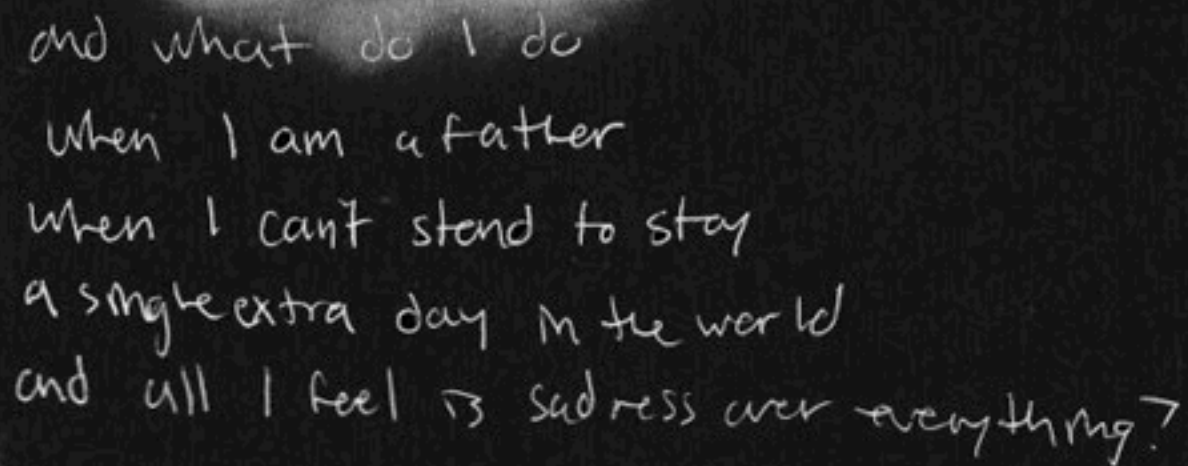 and what do I do
when I am a father
when I can't stand to stay
a single extra day in the world
and all I feel is sadness over everything?